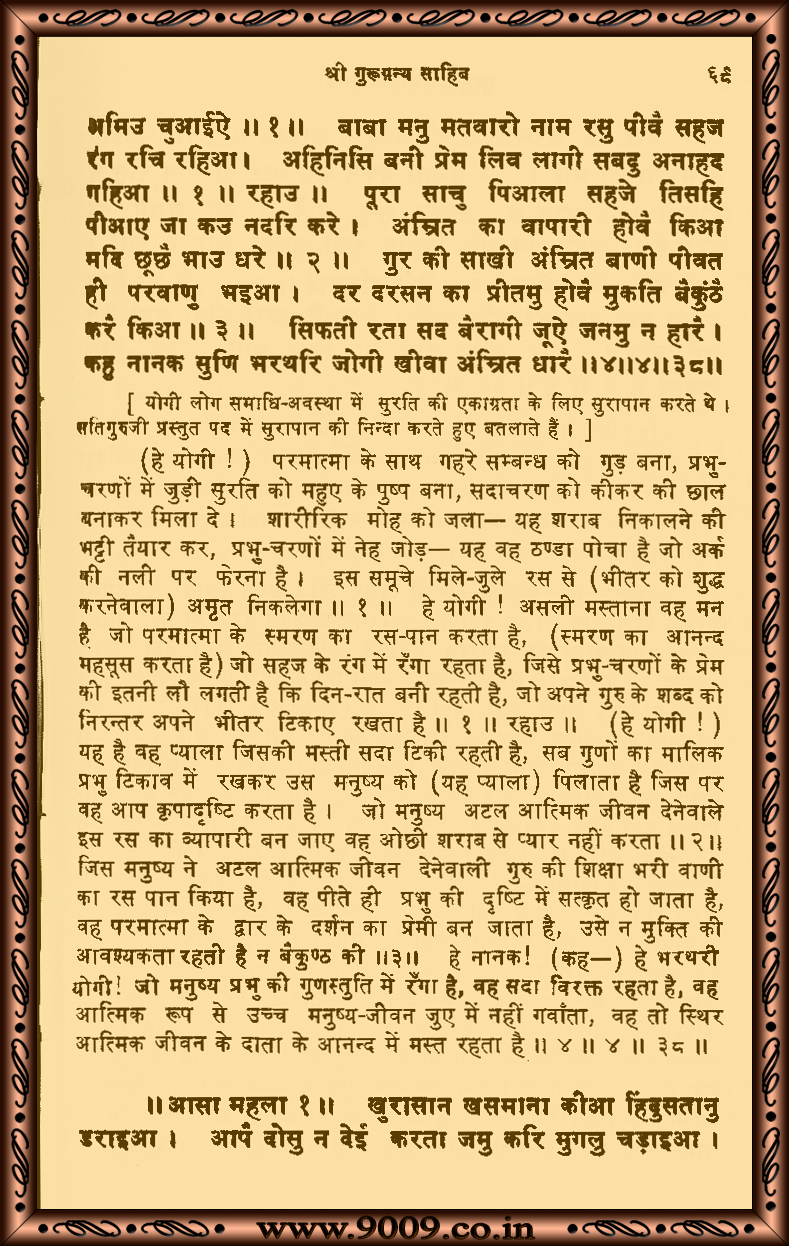 श्री गुरूग्रन्थ साहिब ६८
अमिउ चुआईऐ ॥ १ ॥ बाबा मनु मतवारो नाम रसु पीवै सहज
रंग रचि रहिआ। अहिनिसि बनी प्रेम लिव लागी सबदु अनाहद
गहिआ ॥ १ ॥ रहाउ ॥ पूरा साचु पिआला सहजे तिसहि
पीआए जा कउ नदरि करे । अंम्रित का वापारी होवै किआ
मदि छूछै भाउ धरे ॥ २ ॥ गुर की साखी अंम्रित बाणी पीवत
ही परवाणु भइआ । दर दरसन का प्रीतमु होवै मुकति बैकुंठै
करै किआ ॥ ३ ॥ सिफती रता सद बैरागी जूऐ जनमु न हारै ।
कहु नानक सुणि भरथरि जोगी खीवा अंम्रित धारै ॥४॥४॥३८॥
[ योगी लोग समाधि-अवस्था में सुरति की एकाग्रता के लिए सुरापान करते थे ।
सतिगुरुजी प्रस्तुत पद में सुरापान की निन्दा करते हुए बतलाते हैं । ]
(हे योगी ! ) परमात्मा के साथ गहरे सम्बन्ध को गुड़ बना, प्रभु-
चरणों में जुड़ी सुरति को महुए के पुष्प बना, सदाचरण को कीकर की छाल
बनाकर मिला दे । शारीरिक मोह को जला— यह शराब निकालने की
भट्टी तैयार कर, प्रभु-चरणों में नेह जोड़— यह वह ठण्डा पोचा है जो अर्क
की नली पर फेरना है । इस समूचे मिले-जुले रस से (भीतर को शुद्ध
करनेवाला) अमृत निकलेगा ॥ १ ॥ हे योगी ! असली मस्ताना वह मन
है जो परमात्मा के स्मरण का रस-पान करता है, (स्मरण का आनन्द
महसूस करता है) जो सहज के रंग में रँगा रहता है, जिसे प्रभु-चरणों के प्रेम
की इतनी लौ लगती है कि दिन-रात बनी रहती है, जो अपने गुरु के शब्द को
निरन्तर अपने भीतर टिकाए रखता है ॥ १ ॥ रहाउ ॥ (हे योगी ! )
यह है वह प्याला जिसकी मस्ती सदा टिकी रहती है, सब गुणों का मालिक
प्रभु टिकाव में रखकर उस मनुष्य को (यह प्याला) पिलाता है जिस पर
वह आप कृपादृष्टि करता है । जो मनुष्य अटल आत्मिक जीवन देनेवाले
इस रस का व्यापारी बन जाए वह ओछी शराब से प्यार नहीं करता ॥ २॥
जिस मनुष्य ने अटल आत्मिक जीवन देनेवाली गुरु की शिक्षा भरी वाणी
का रस पान किया है, वह पीते ही प्रभु की दृष्टि में सत्कृत हो जाता है,
वह परमात्मा के द्वार के दर्शन का प्रेमी बन जाता है, उसे न मुक्ति की
आवश्यकता रहती है न बैकुण्ठ की ॥३॥ हे नानक! (कह—) हे भरथरी
योगी! जो मनुष्य प्रभु की गुणस्तुति में रँगा है, वह सदा विरक्त रहता है, वह
आत्मिक रूप से उच्च मनुष्य-जीवन जुए में नहीं गवाँता, वह तो स्थिर
आत्मिक जीवन के दाता के आनन्द में मस्त रहता है ॥ ४ ॥ ४ ॥ ३८ ॥
॥ आसा महला १ ॥ खुरासान खसमाना कीआ हिंदुसतानु
डराइआ । आपै दोसु न देई करता जमु करि मुगलु चड़ाइआ ।
www.9009.co.in